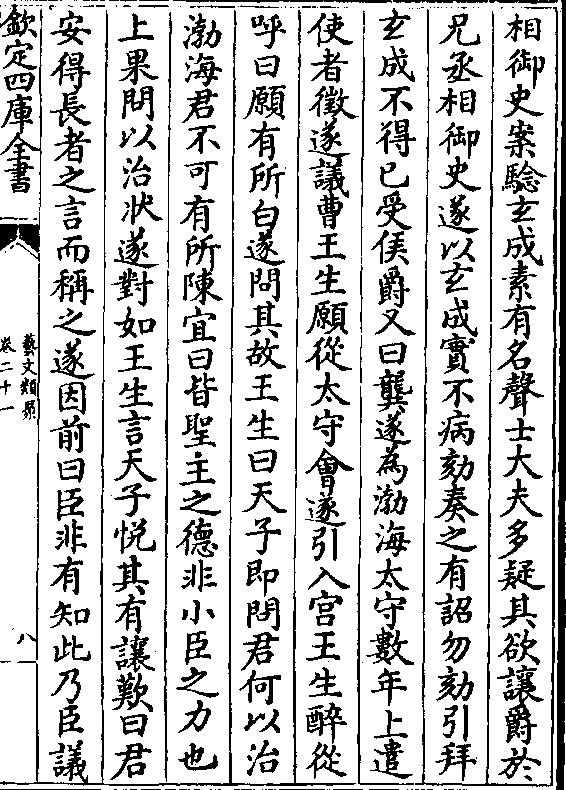 相御史案驗玄成素有名聲士大夫多疑其欲讓爵於
兄丞相御史遂以玄成實不病劾奏之有詔勿劾引拜
玄成不得已受侯爵又曰龔遂為渤海太守數年上遣
使者徵遂議曹王生願從太守會遂引入宫王生醉從
呼曰願有所白遂問其故王生曰天子即問君何以治
渤海君不可有所陳宜曰皆聖主之德非小臣之力也
上果問以治狀遂對如王生言天子悦其有讓歎曰君
安得長者之言而稱之遂因前曰臣非有知此乃臣議
欽定四庫全書
藝文類聚
卷二十一
八